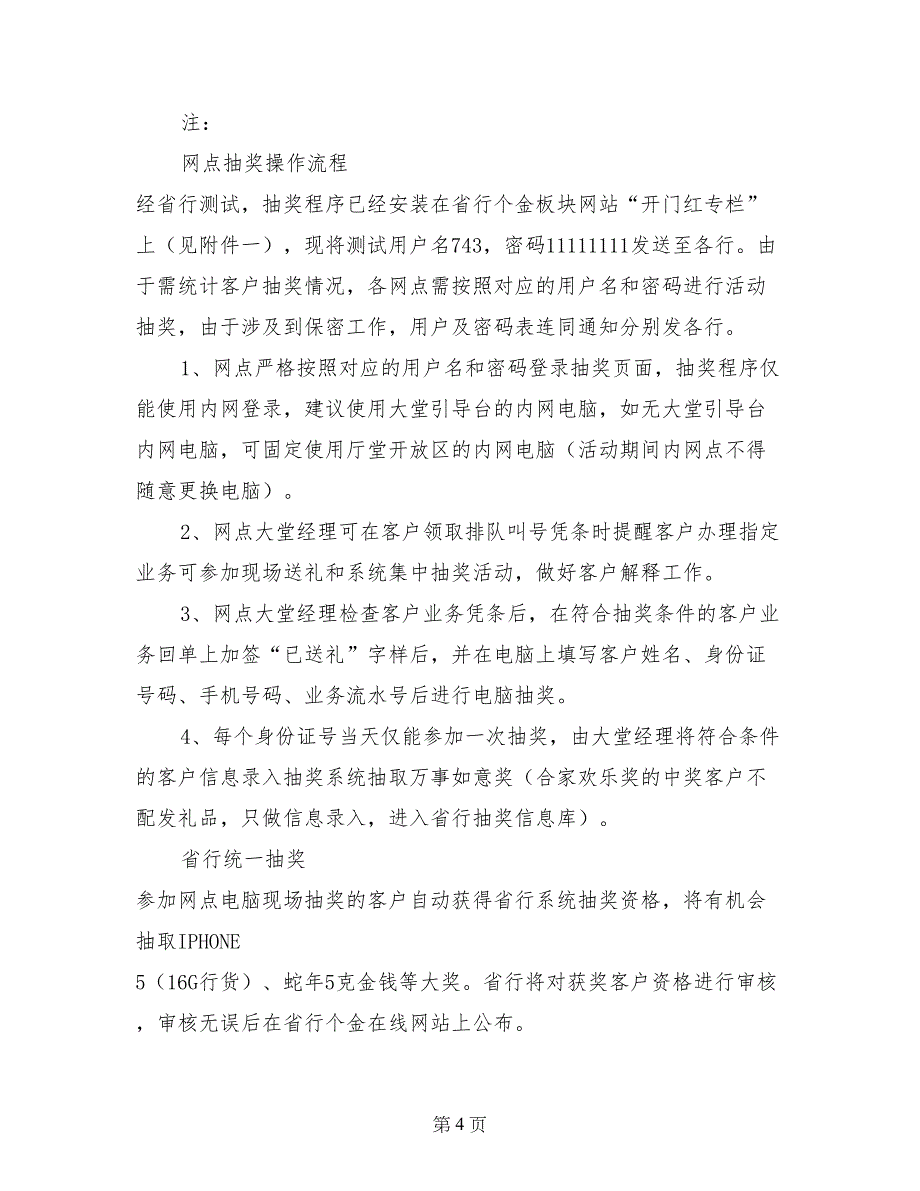 注：
网点抽奖操作流程
经省行测试，抽奖程序已经安装在省行个金板块网站“开门红专栏”
上（见附件一），现将测试用户名743，密码11111111发送至各行。由
于需统计客户抽奖情况，各网点需按照对应的用户名和密码进行活动
抽奖，由于涉及到保密工作，用户及密码表连同通知分别发各行。
1、网点严格按照对应的用户名和密码登录抽奖页面，抽奖程序仅
能使用内网登录，建议使用大堂引导台的内网电脑，如无大堂引导台
内网电脑，可固定使用厅堂开放区的内网电脑（活动期间内网点不得
随意更换电脑）。
2、网点大堂经理可在客户领取排队叫号凭条时提醒客户办理指定
业务可参加现场送礼和系统集中抽奖活动，做好客户解释工作。
3、网点大堂经理检查客户业务凭条后，在符合抽奖条件的客户业
务回单上加签“已送礼”字样后，并在电脑上填写客户姓名、身份证
号码、手机号码、业务流水号后进行电脑抽奖。
4、每个身份证号当天仅能参加一次抽奖，由大堂经理将符合条件
的客户信息录入抽奖系统抽取万事如意奖（合家欢乐奖的中奖客户不
配发礼品，只做信息录入，进入省行抽奖信息库）。
省行统一抽奖
参加网点电脑现场抽奖的客户自动获得省行系统抽奖资格，将有机会
抽取IPHONE
5（16G行货）、蛇年5克金钱等大奖。省行将对获奖客户资格进行审核
，审核无误后在省行个金在线网站上公布。
第 4 页